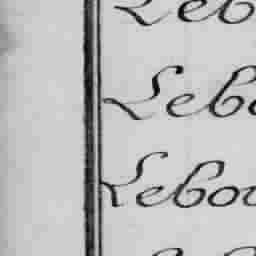 Leb
Lebo
Lebou